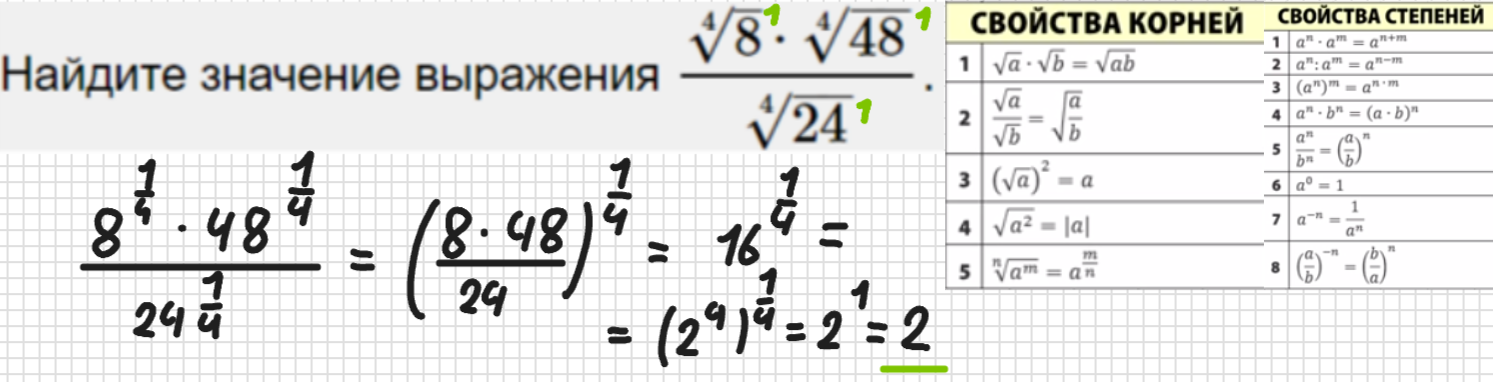 Найдите значение выражения \frac{\sqrt[4]{8}^1 \cdot \sqrt[4]{48}^1}{\sqrt[4]{24}^1}.
\frac{8^{\frac{1}{4}} \cdot 48^{\frac{1}{4}}}{24^{\frac{1}{4}}} = \left(\frac{8 \cdot 48}{24}\right)^{\frac{1}{4}} = 16^{\frac{1}{4}} =
= (2^4)^{\frac{1}{4}} = 2^1 = 2
СВОЙСТВА КОРНЕЙ
1 \sqrt{a} \cdot \sqrt{b} = \sqrt{ab}
2 \frac{\sqrt{a}}{\sqrt{b}} = \sqrt{\frac{a}{b}}
3 (\sqrt{a})^2 = a
4 \sqrt{a^2} = |a|
5 \sqrt[n]{a^m} = a^{\frac{m}{n}}
СВОЙСТВА СТЕПЕНЕЙ
1 a^n \cdot a^m = a^{n+m}
2 a^n : a^m = a^{n-m}
3 (a^n)^m = a^{n \cdot m}
4 a^n \cdot b^n = (a \cdot b)^n
5 \frac{a^n}{b^n} = \left(\frac{a}{b}\right)^n
6 a^0 = 1
7 a^{-n} = \frac{1}{a^n}
8 \left(\frac{a}{b}\right)^{-n} = \left(\frac{b}{a}\right)^n